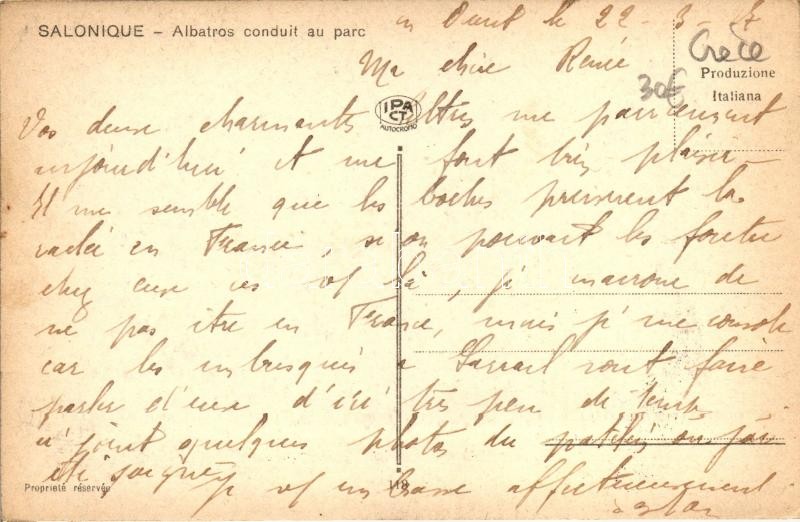 SALONIQUE – Albatros conduit au parc
en Orient le 22-3-17
Ma chère Renée
Crece
30€
Produzione
Italiana
IPA
CT
AUTOCROMO
Vos deux charmantes lettres me parviennent
aujourd'hui et me font très plaisir –
Il me semble que les boches prennent la
raclée en France, si on pouvait les foutre
chez eux ces là, je marronne de
ne pas être en France, mais je me console
car les embusqués à Sarrail vont faire
parler d'eux d'ici très peu de temps
ci joint quelques photos du où j'ai
été soigné
Je embrasse affectueusement
Proprieté réservée
118